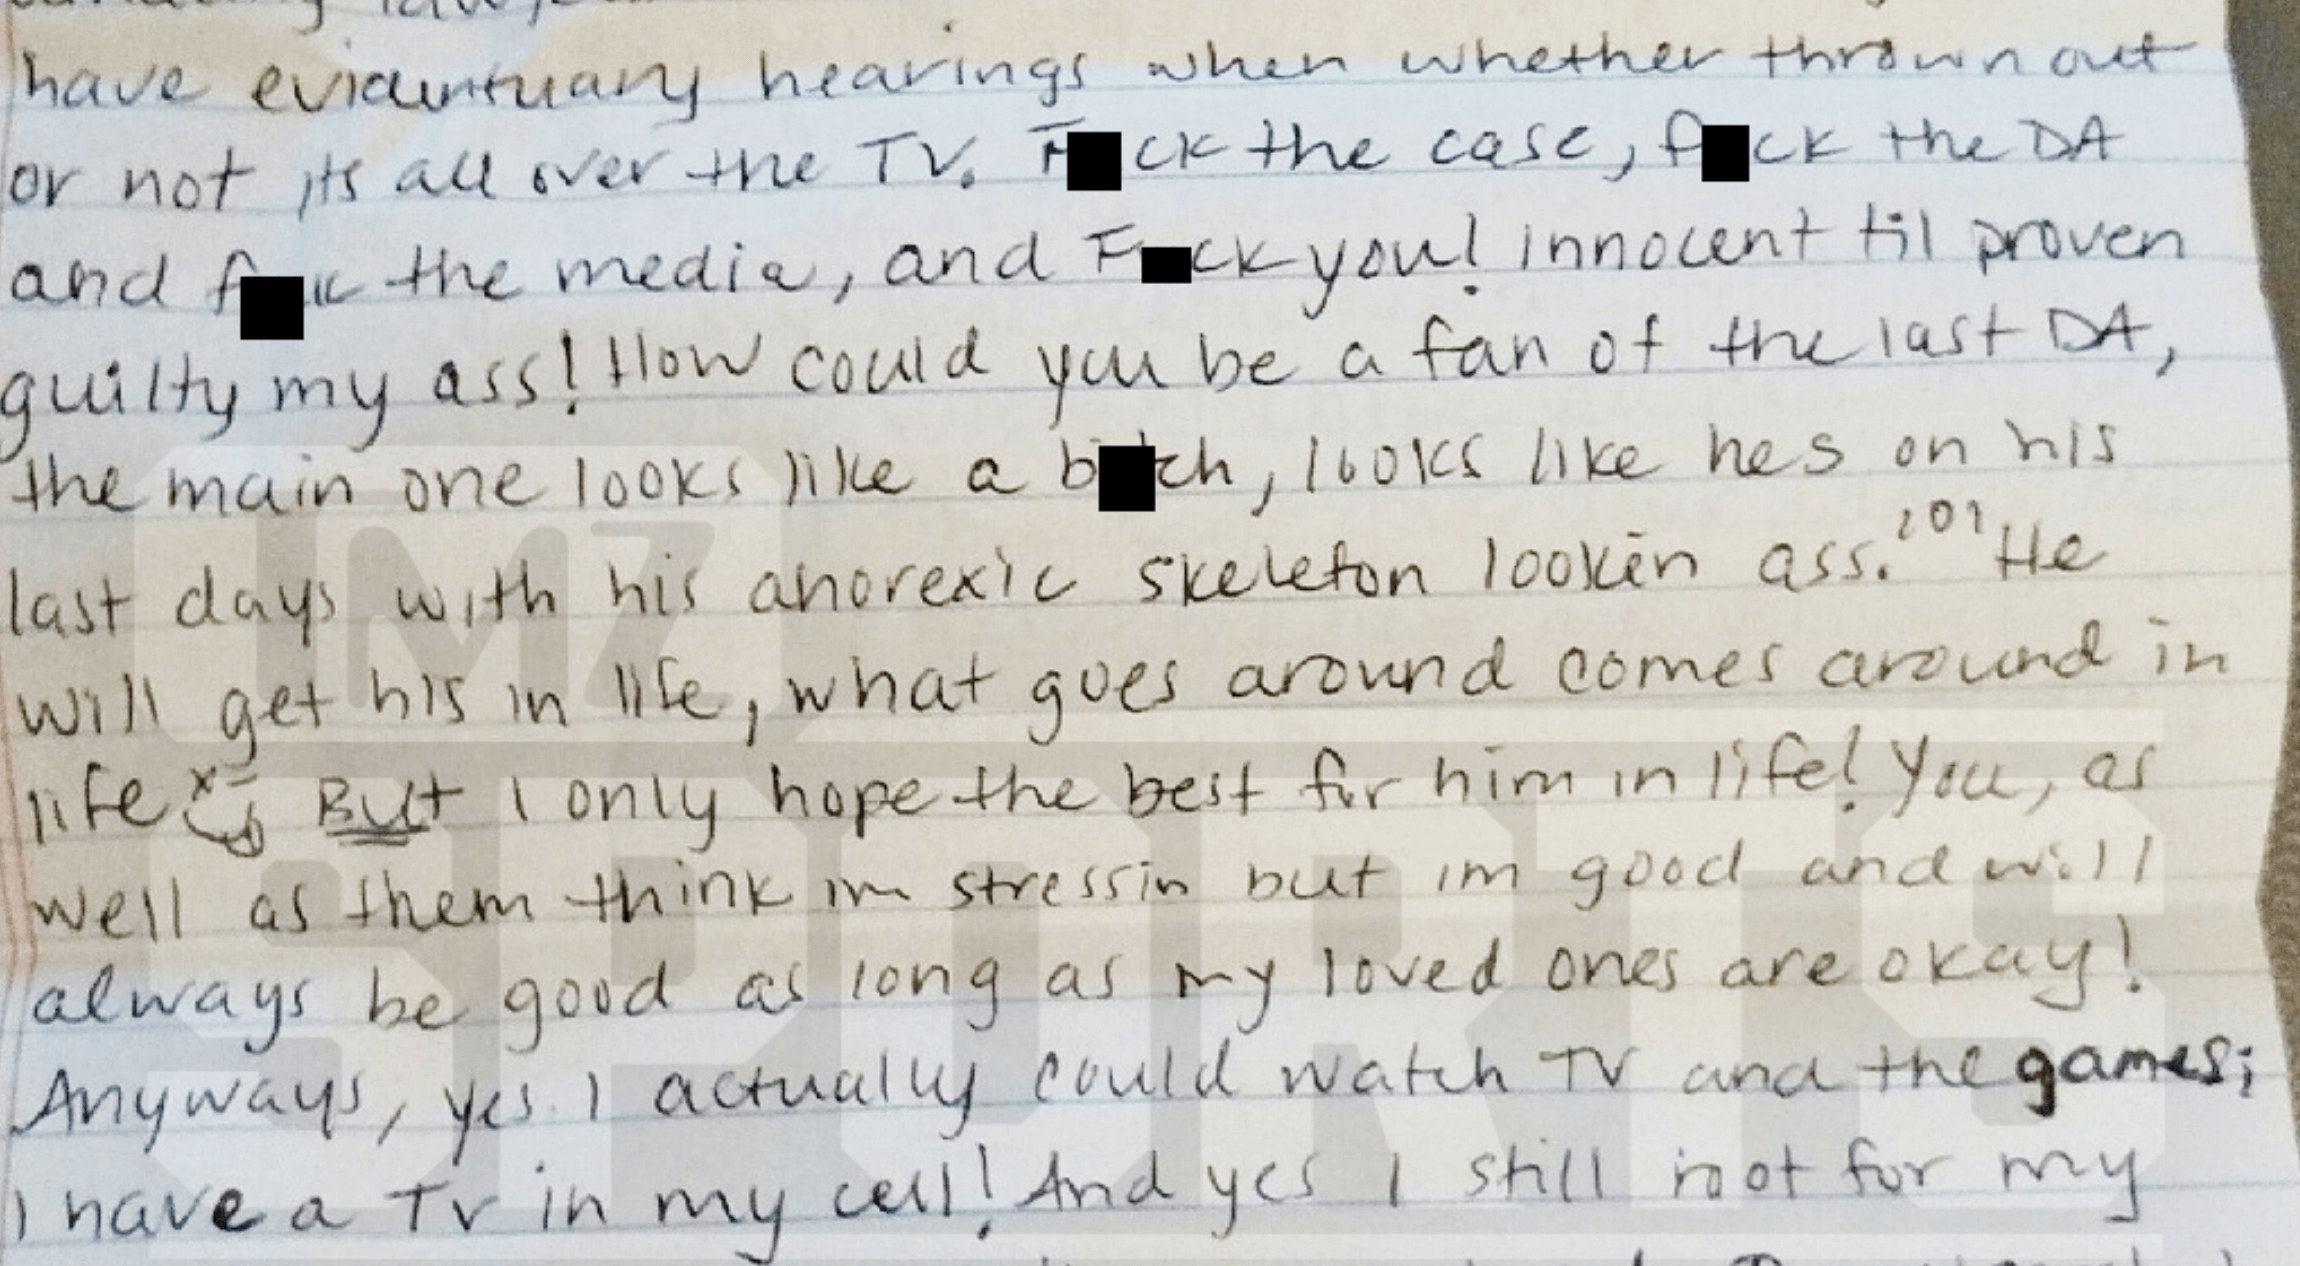 have evidentuary hearings when whether thrown out
or not its all over the TV. F■ck the case, f■ck the DA
and f■ck the media, and F■ck you! innocent til proven
guilty my ass! How could you be a fan of the last DA,
the main one looks like a b■tch, looks like hes on his
last days with his anorexic skeleton lookin ass. He
will get his in life, what goes around comes around in
life But I only hope the best for him in life! You, as
well as them think im stressin but im good and will
always be good as long as my loved ones are okay!
Anyways, yes I actually could watch TV and the games;
I have a TV in my cell! And yes I still root for my
TMZ
SPORTS